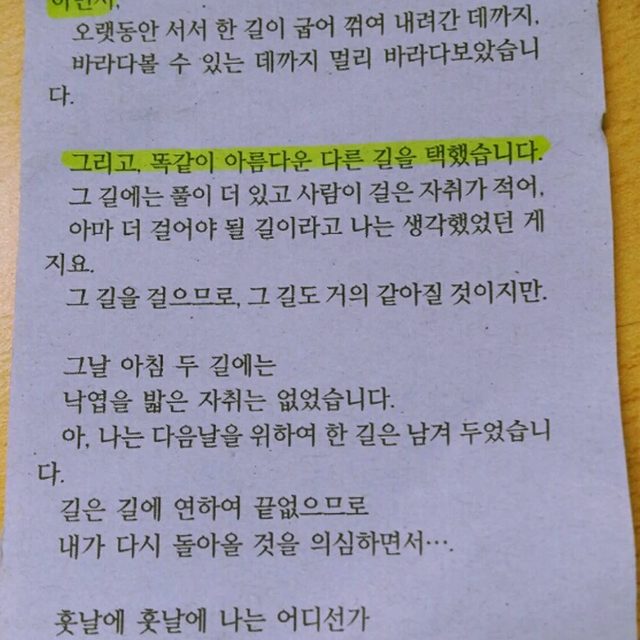 하면서,
오랫동안 서서 한 길이 굽어 꺾여 내려간 데까지,
바라다볼 수 있는 데까지 멀리 바라다보았습니
다.
그리고, 똑같이 아름다운 다른 길을 택했습니다.
그 길에는 풀이 더 있고 사람이 걸은 자취가 적어,
아마 더 걸어야 될 길이라고 나는 생각했었던 게
지요.
그 길을 걸으므로, 그 길도 거의 같아질 것이지만.
그날 아침 두 길에는
낙엽을 밟은 자취는 없었습니다.
아, 나는 다음날을 위하여 한 길은 남겨 두었습니
다.
길은 길에 연하여 끝없으므로
내가 다시 돌아올 것을 의심하면서….
훗날에 훗날에 나는 어디선가